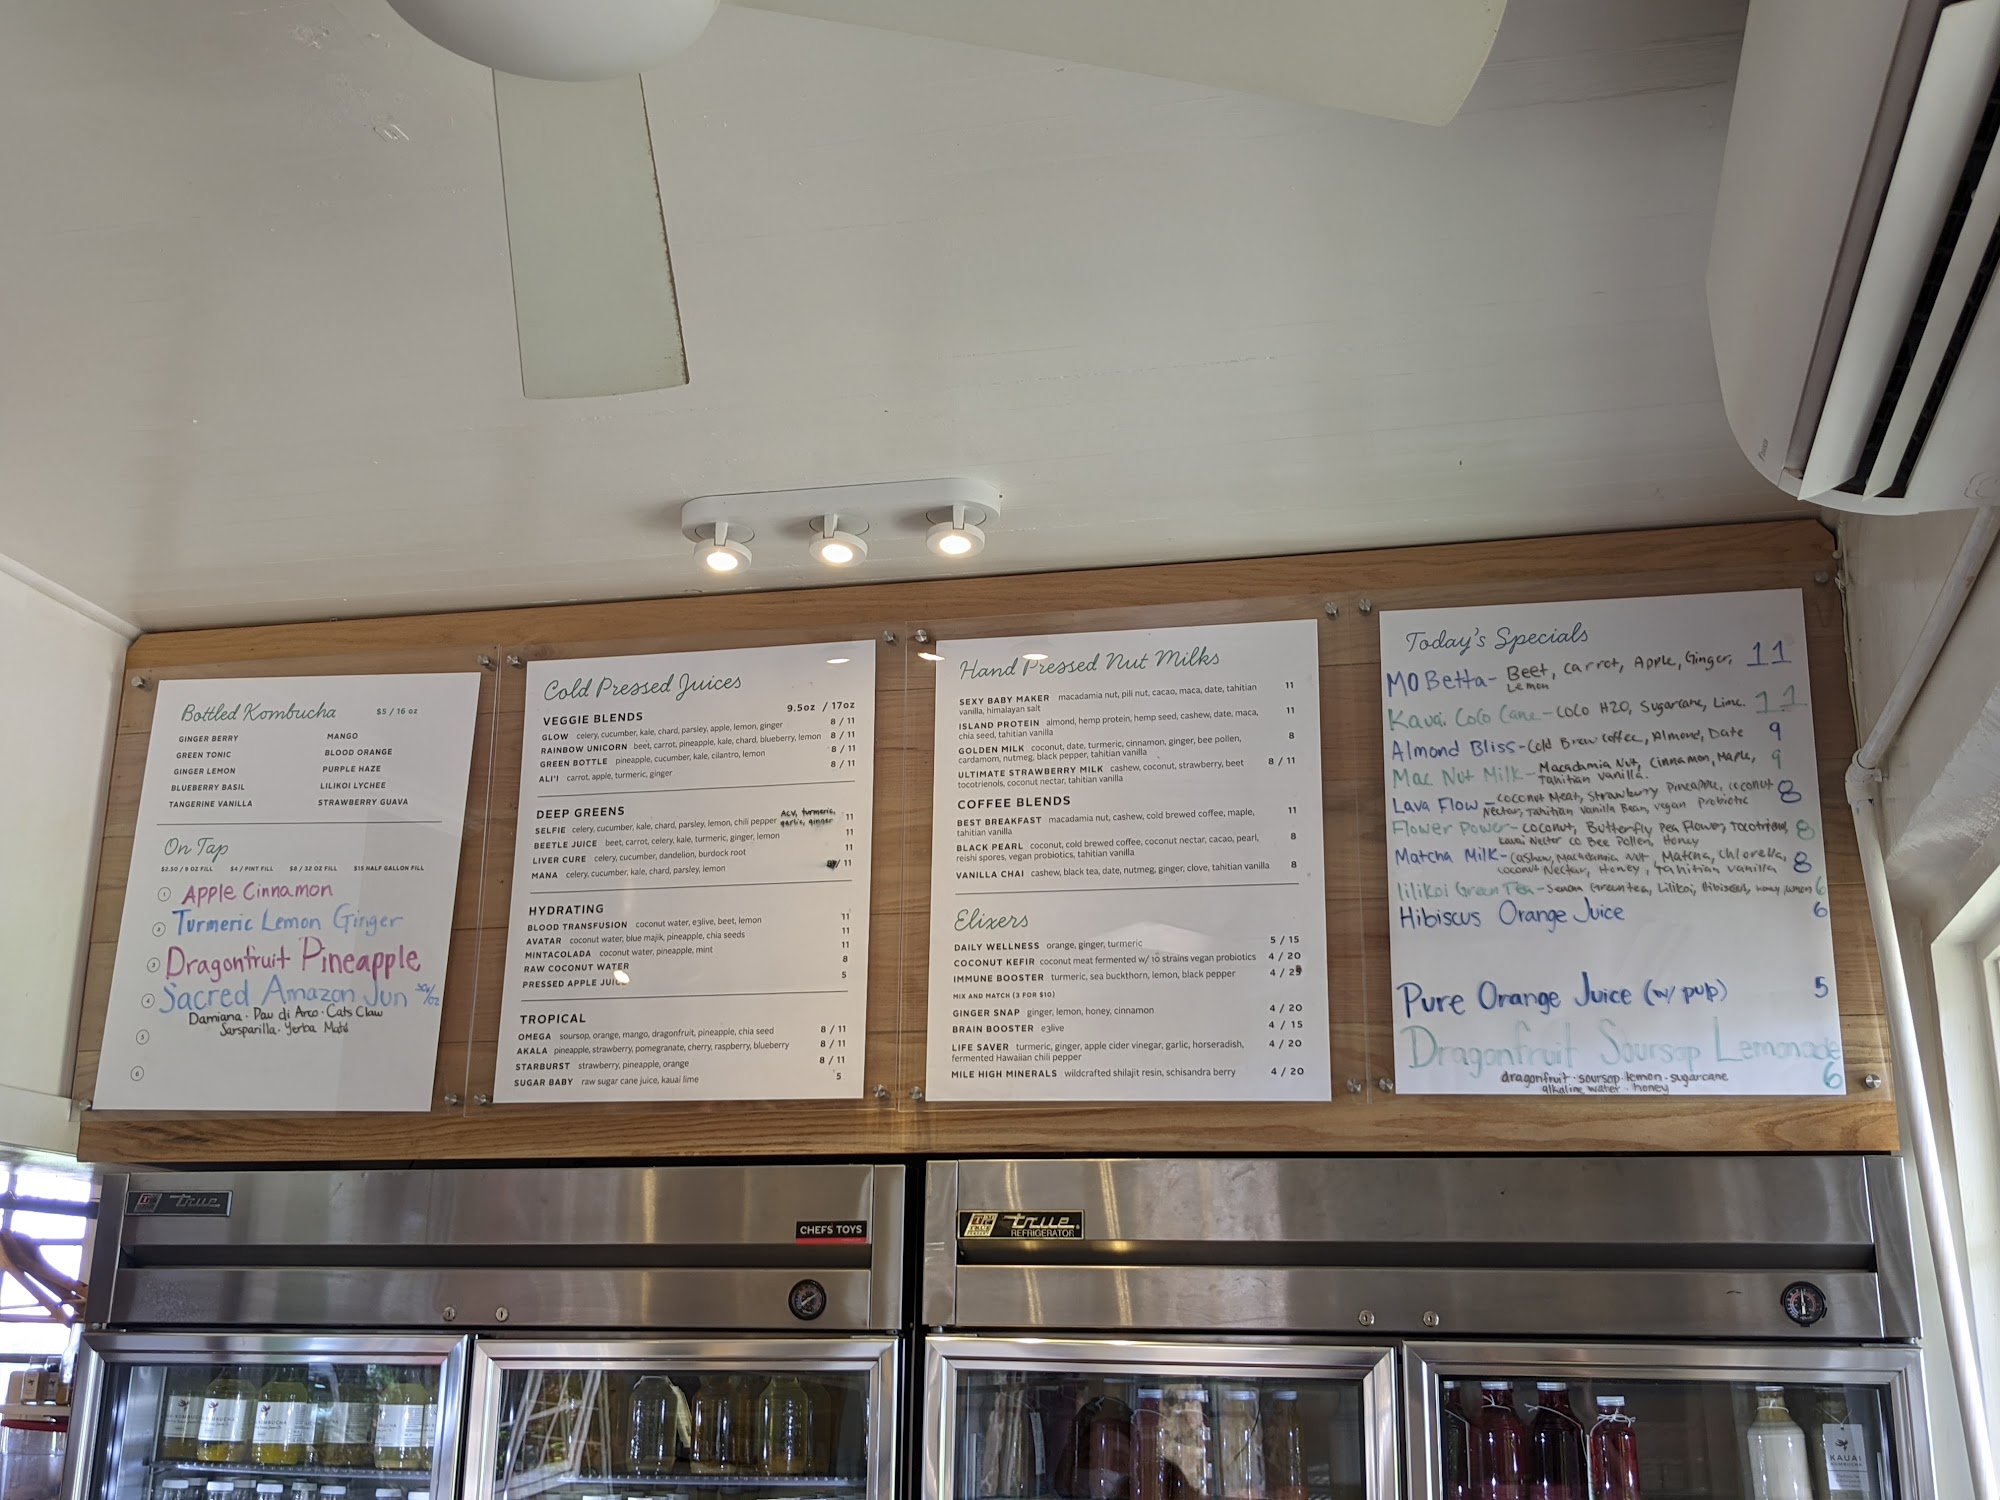 Bottled Kombucha $5 / 16 oz
GINGER BERRY
GREEN TONIC
GINGER LEMON
BLUEBERRY BASIL
TANGERINE VANILLA
MANGO
BLOOD ORANGE
PURPLE HAZE
LILIKOI LYCHEE
STRAWBERRY GUAVA
On Tap
$2.50 / 9 OZ FILL $4 / PINT FILL $8 / 32 OZ FILL $15 HALF GALLON FILL
1 Apple Cinnamon
2 Turmeric Lemon Ginger
3 Dragonfruit Pineapple
4 Sacred Amazon Jun
Damiana · Pau di Arco · Cats Claw
Sarsparilla · Yerba Maté
5
6
Cold Pressed Juices
9.5oz / 17oz
VEGGIE BLENDS
GLOW celery, cucumber, kale, chard, parsley, apple, lemon, ginger 8 / 11
RAINBOW UNICORN beet, carrot, pineapple, kale, chard, blueberry, lemon 8 / 11
GREEN BOTTLE pineapple, cucumber, kale, cilantro, lemon 8 / 11
ALI'I carrot, apple, turmeric, ginger 8 / 11
DEEP GREENS
SELFIE celery, cucumber, kale, chard, parsley, lemon, chili pepper ACV, turmeric, garlic, ginger 11
BEETLE JUICE beet, carrot, celery, kale, turmeric, ginger, lemon 11
LIVER CURE celery, cucumber, dandelion, burdock root 11
MANA celery, cucumber, kale, chard, parsley, lemon / 11
HYDRATING
BLOOD TRANSFUSION coconut water, e3live, beet, lemon 11
AVATAR coconut water, blue majik, pineapple, chia seeds 11
MINTACOLADA coconut water, pineapple, mint 11
RAW COCONUT WATER 8
PRESSED APPLE JUICE 5
TROPICAL
OMEGA soursop, orange, mango, dragonfruit, pineapple, chia seed 8 / 11
AKALA pineapple, strawberry, pomegranate, cherry, raspberry, blueberry 8 / 11
STARBURST strawberry, pineapple, orange 8 / 11
SUGAR BABY raw sugar cane juice, kauai lime 5
Hand Pressed Nut Milks
SEXY BABY MAKER macadamia nut, pili nut, cacao, maca, date, tahitian 11
vanilla, himalayan salt
ISLAND PROTEIN almond, hemp protein, hemp seed, cashew, date, maca, 11
chia seed, tahitian vanilla
GOLDEN MILK coconut, date, turmeric, cinnamon, ginger, bee pollen, 8
cardamom, nutmeg, black pepper, tahitian vanilla
ULTIMATE STRAWBERRY MILK cashew, coconut, strawberry, beet 8 / 11
tocotrienols, coconut nectar, tahitian vanilla
COFFEE BLENDS
BEST BREAKFAST macadamia nut, cashew, cold brewed coffee, maple, 11
tahitian vanilla
BLACK PEARL coconut, cold brewed coffee, coconut nectar, cacao, pearl, 8
reishi spores, vegan probiotics, tahitian vanilla
VANILLA CHAI cashew, black tea, date, nutmeg, ginger, clove, tahitian vanilla 8
Elixers
DAILY WELLNESS orange, ginger, turmeric 5 / 15
COCONUT KEFIR coconut meat fermented w/ 10 strains vegan probiotics 4 / 20
IMMUNE BOOSTER turmeric, sea buckthorn, lemon, black pepper 4 /
MIX AND MATCH (3 FOR $10)
GINGER SNAP ginger, lemon, honey, cinnamon 4 / 20
BRAIN BOOSTER e3live 4 / 15
LIFE SAVER turmeric, ginger, apple cider vinegar, garlic, horseradish, 4 / 20
fermented Hawaiian chili pepper
MILE HIGH MINERALS wildcrafted shilajit resin, schisandra berry 4 / 20
Today's Specials
MO Betta - Beet, Carrot, Apple, Ginger, 11
Lemon
Kauai Coco Cane - Coco H2O, Sugarcane, Lime. 11
Almond Bliss - Cold Brew Coffee, Almond, Date 9
Mac Nut Milk - Macadamia Nut, Cinnamon, Maple, 9
Tahitian Vanilla.
Lava Flow - Coconut Meat, Strawburry Pineapple, coconut 8
Nectar, Tahitian Vanilla Bean, vegan Probiotic
Flower Power - Coconut, Butterfly Pea Flower, Tocotrienols 8
Kauai Nectar Co Bee Pollen, Honey
Matcha Milk - Cashew, Macadamia Nut, Matcha, Chlorella, 8
Coconut Nectar, Honey, Tahitian Vanilla
lilikoi Green Tea - Sencha Green tea, Lilikoi, Hibiscus, honey, lemon 6
Hibiscus Orange Juice 6
Pure Orange Juice (w/ pulp) 5
Dragonfruit Soursop Lemonade
dragonfruit · soursop · lemon · sugarcane 6
alkaline water · honey
true
CHEFS' TOYS
true
REFRIGERATOR
KAUAI
KOMBUCHA